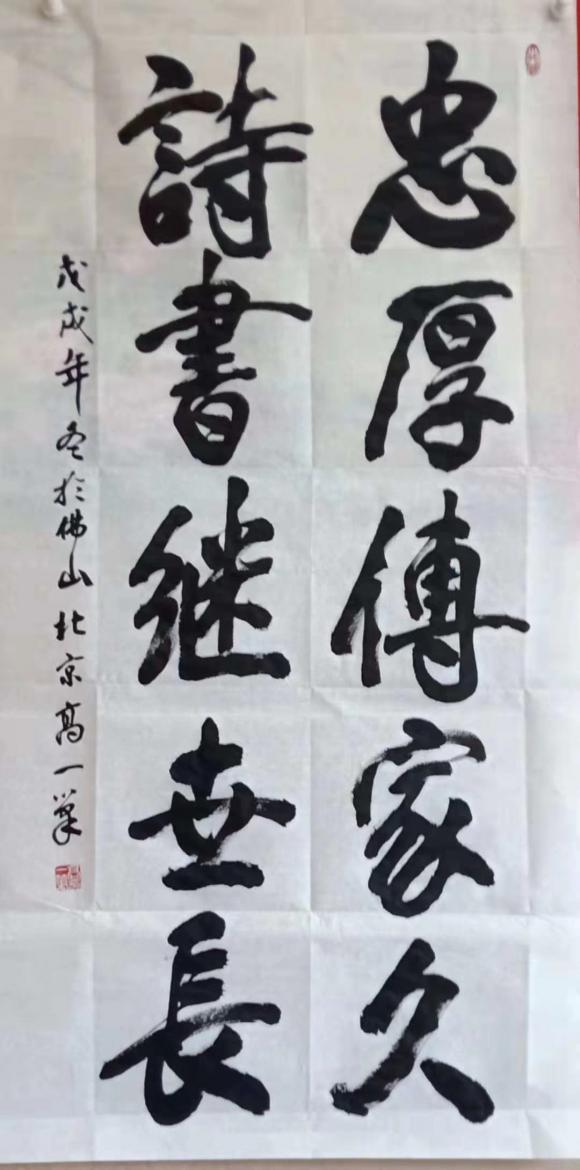 忠厚傳家久
詩書继世長
戊戌年冬於佛山北京高一筆